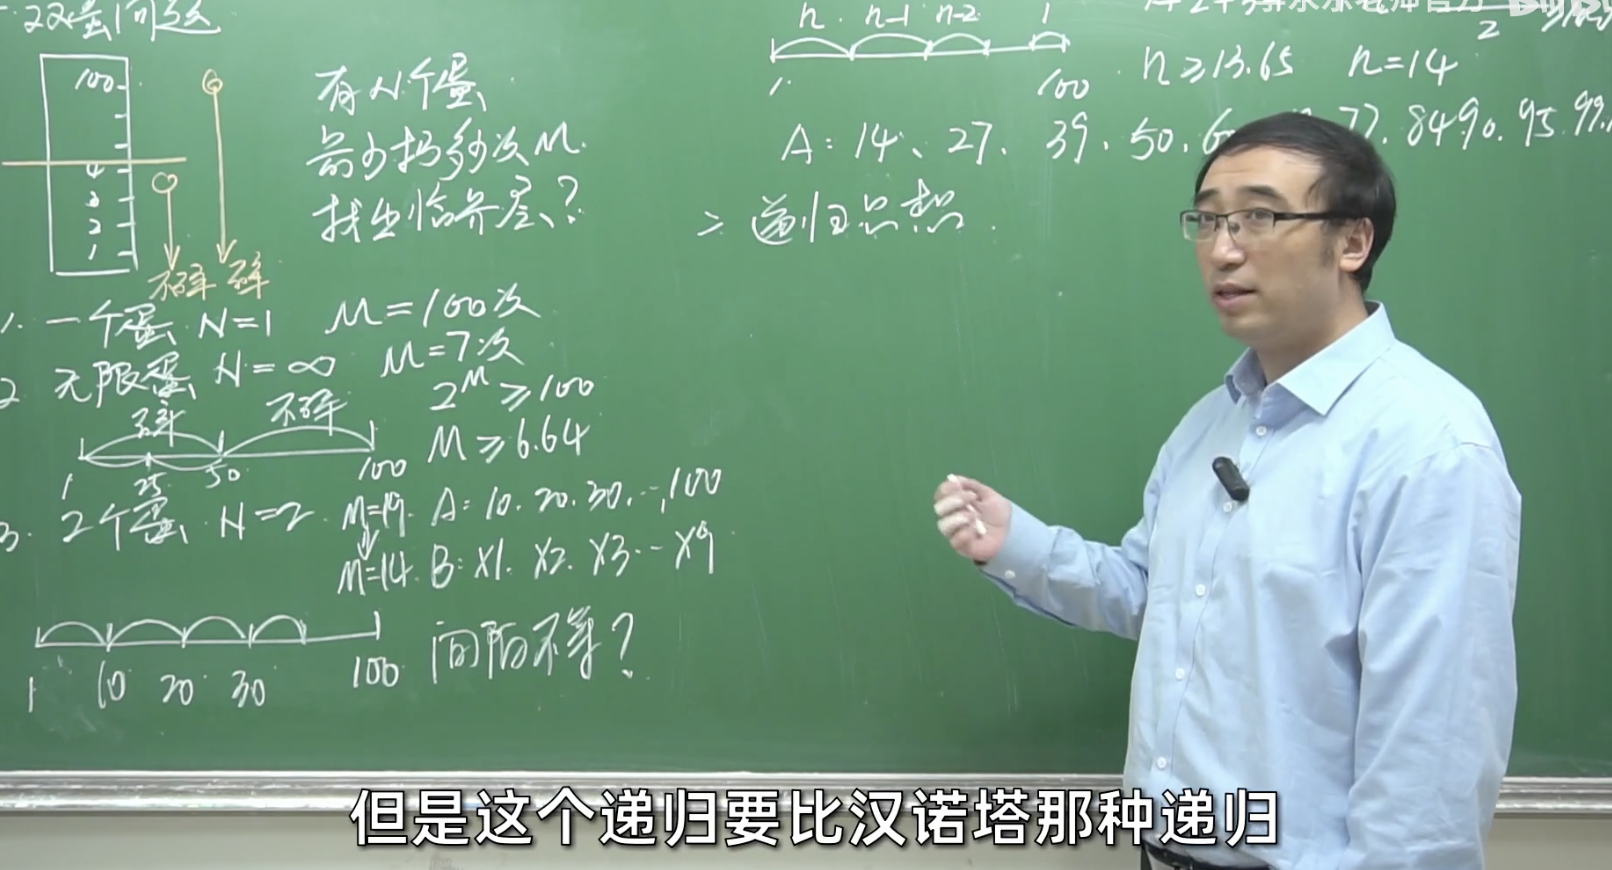 一.双蛋问题
100
4
3
2
1
不碎 碎
有N个蛋
最少扔多少次M.
找出临界层?
1. 一个蛋 N=1 M=100次
2 无限蛋 N=∞ M=7次
2^M ≥100
M≥6.64
碎 不碎
1 25 50 100
3. 2个蛋 N=2 M=19. A: 10. 20. 30. …, 100
M=14. B: X1. X2. X3. … X9
1 10 20 30 100
间隔不等?
n. n-1 n-2 1
1 100
1+2+3+
2
n≥13.65 n=14
A: 14、27、39、50、
77、84 90、95、99、
二 递归思想
李永乐老师官方
bilibili
但是这个递归要比汉诺塔那种递归